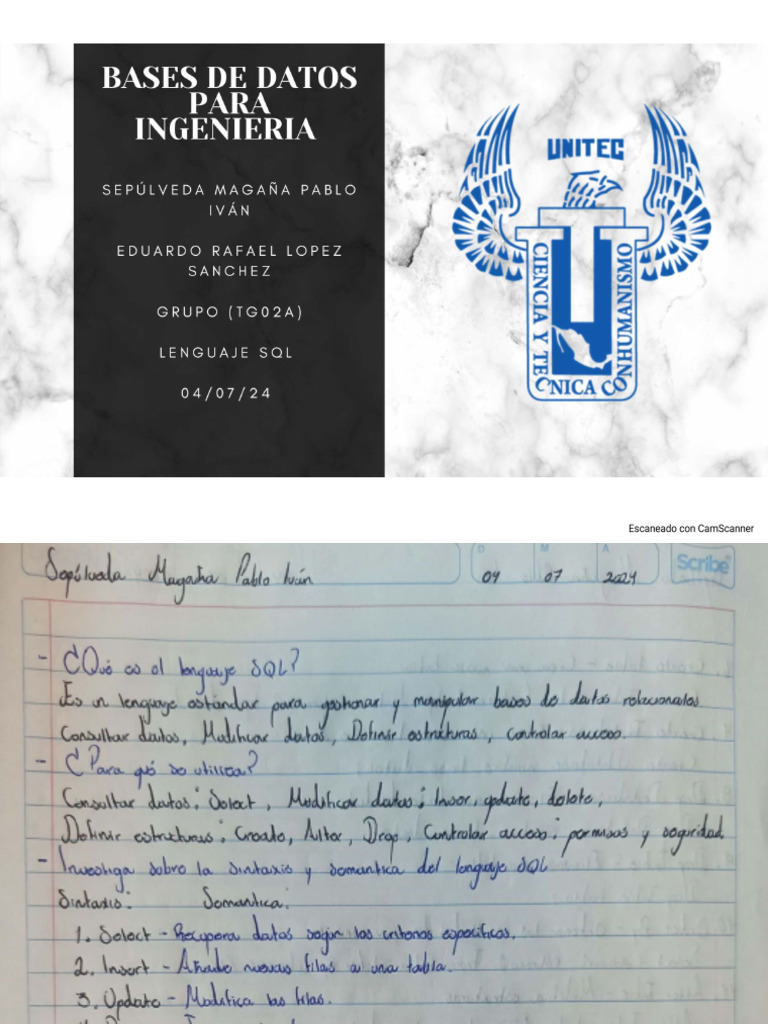 BASES DE DATOS
PARA
INGENIERIA
SEPÚLVEDA MAGAÑA PABLO
IVÁN
EDUARDO RAFAEL LOPEZ
SANCHEZ
GRUPO (TG02A)
LENGUAJE SQL
04/07/24
UNITEC
CIENCIA Y TECNICA CON HUMANISMO
Escaneado con CamScanner
Sepúlveda Magaña Pablo Iván
D M A
04 07 2024
Scribe
- ¿Qué es el lenguaje SQL?
Es un lenguaje estándar para gestionar y manipular bases de datos relacionales
Consultar datos, Modificar datos, Definir estructuras, controlar acceso.
- ¿Para qué se utiliza?
Consultar datos: Select, Modificar datos: Inser, update, delete,
Definir estructuras: Create, Alter, Drop, Controlar acceso: permisos y seguridad
- Investiga sobre la sintaxis y semantica del lenguaje SQL
Sintaxis: Semantica:
1. Select - Recupera datos según los criterios específicos.
2. Insert - Añade nuevas filas a una tabla.
3. Update - Modifica las filas.